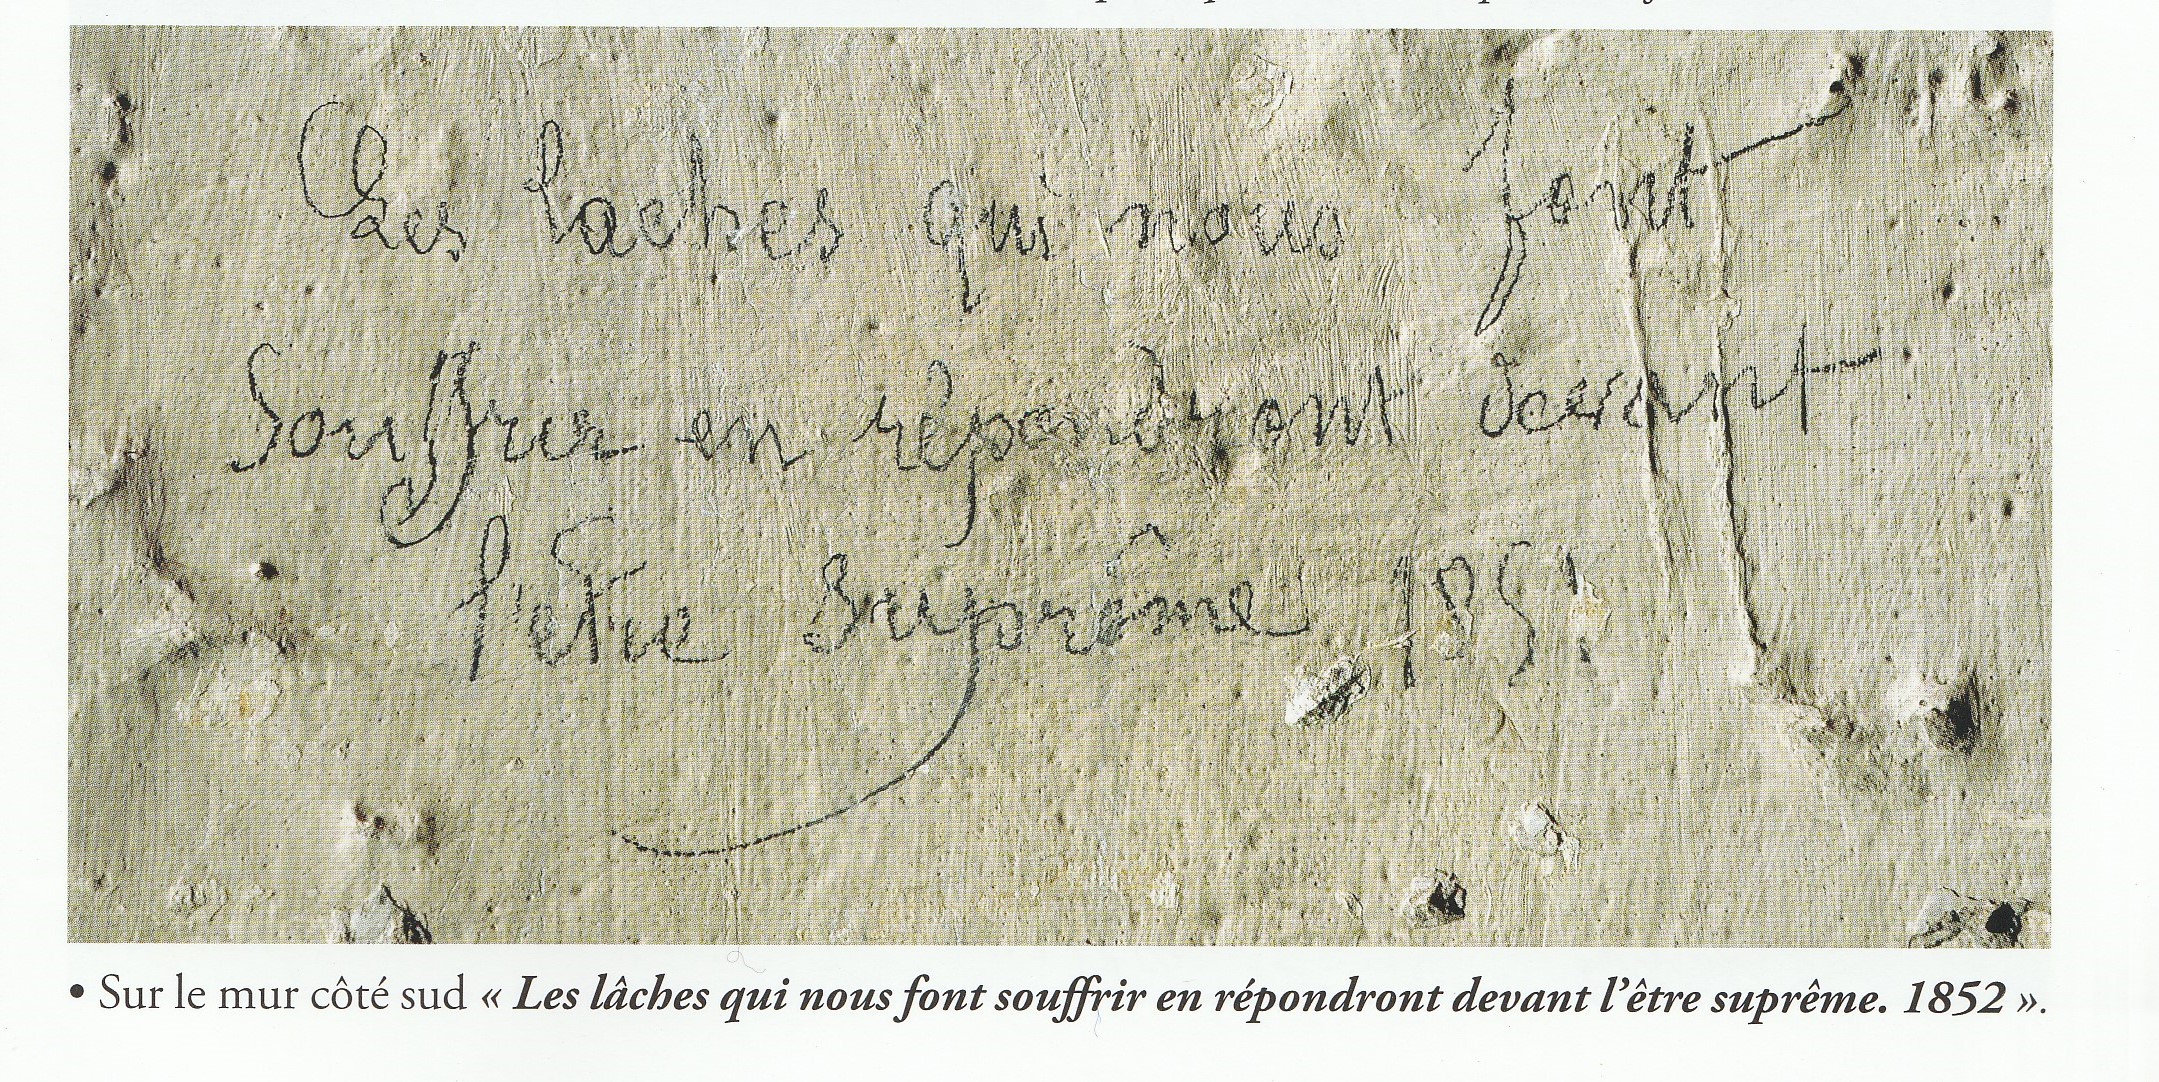 Les laches qui nous font
Souffrir en répondront devant
l'être Suprême 1851
• Sur le mur côté sud « Les lâches qui nous font souffrir en répondront devant l'être suprême. 1852 ».